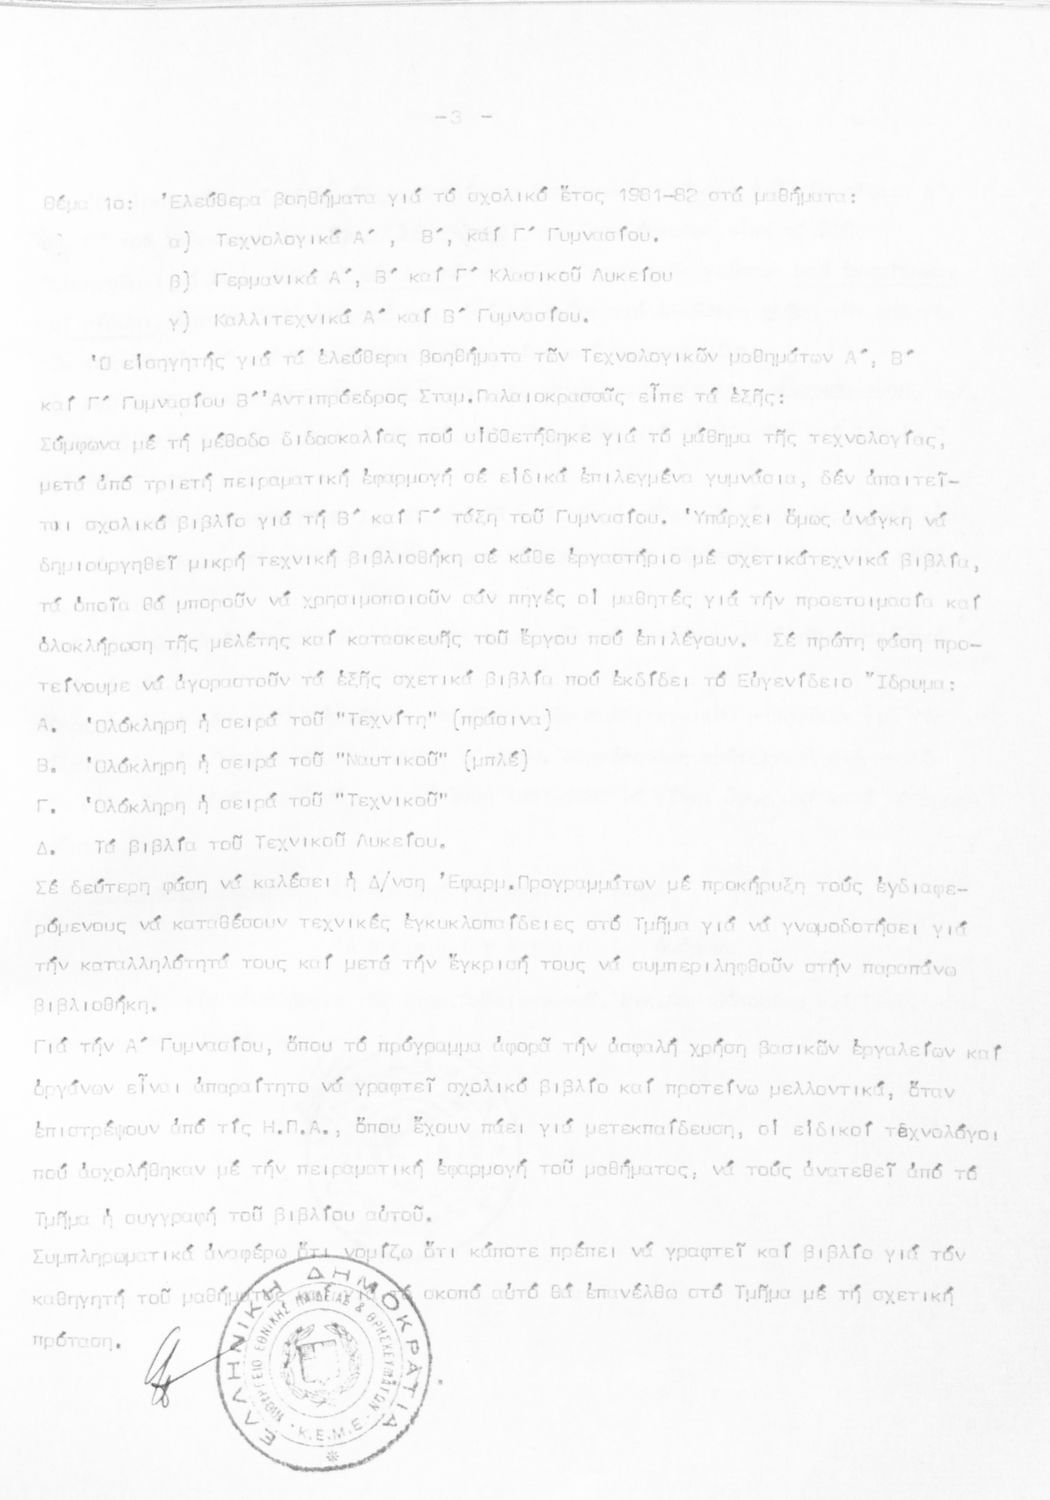 -3 -
θέμα 1ο: Ἐλεύθερα βοηθήματα γιά τό σχολικό ἔτος 1981-82 στά μαθήματα:
α) Τεχνολογικά Α΄, Β΄, καί Γ΄ Γυμνασίου.
β) Γερμανικά Α΄, Β΄ καί Γ΄ Κλασικοῦ Λυκείου
γ) Καλλιτεχνικά Α΄ καί Β΄ Γυμνασίου.
Ὁ εἰσηγητής γιά τά ἐλεύθερα βοηθήματα τῶν Τεχνολογικῶν μαθημάτων Α΄, Β΄
καί Γ΄ Γυμνασίου Β΄ Ἀντιπρόεδρος Σταμ.Παλαιοκρασσᾶς εἶπε τά ἑξῆς:
Σύμφωνα μέ τή μέθοδο διδασκαλίας πού υἱοθετήθηκε γιά τό μάθημα τῆς τεχνολογίας,
μετά ἀπό τριετή πειραματική ἐφαρμογή σέ εἰδικά ἐπιλεγμένα γυμνάσια, δέν ἀπαιτεῖ-
ται σχολικό βιβλίο γιά τή Β΄ καί Γ΄ τάξη τοῦ Γυμνασίου. Ὑπάρχει ὅμως ἀνάγκη νά
δημιουργηθεῖ μικρή τεχνική βιβλιοθήκη σέ κάθε ἐργαστήριο μέ σχετικάτεχνικά βιβλία,
τά ὁποῖα θά μποροῦν νά χρησιμοποιοῦν σάν πηγές οἱ μαθητές γιά τήν προετοιμασία καί
ὁλοκλήρωση τῆς μελέτης καί κατασκευῆς τοῦ ἔργου πού ἐπιλέγουν. Σέ πρώτη φάση προ-
τείνουμε νά ἀγοραστοῦν τά ἑξῆς σχετικά βιβλία πού ἐκδίδει τό Εὐγενίδειο Ἵδρυμα:
Α. Ὁλόκληρη ἡ σειρά τοῦ "Τεχνίτη" (πράσινα)
Β. Ὁλόκληρη ἡ σειρά τοῦ "Ναυτικοῦ" (μπλέ)
Γ. Ὁλόκληρη ἡ σειρά τοῦ "Τεχνικοῦ"
Δ. Τά βιβλία τοῦ Τεχνικοῦ Λυκείου.
Σέ δεύτερη φάση νά καλέσει ἡ Δ/νση Ἐφαρμ.Προγραμμάτων μέ προκήρυξη τούς ἐγδιαφε-
ρόμενους νά καταθέσουν τεχνικές ἐγκυκλοπαίδειες στό Τμῆμα γιά νά γνωμοδοτήσει γιά
τήν καταλληλότητά τους καί μετά τήν ἔγκρισή τους νά συμπεριληφθοῦν στήν παραπάνω
βιβλιοθήκη.
Γιά τήν Α΄ Γυμνασίου, ὅπου τό πρόγραμμα ἀφορᾶ τήν ἀσφαλή χρήση βασικῶν ἐργαλείων καί
ὀργάνων εἶναι ἀπαραίτητο νά γραφτεῖ σχολικό βιβλίο καί προτείνω μελλοντικά, ὅταν
ἐπιστρέψουν ἀπό τίς Η.Π.Α., ὅπου ἔχουν πάει γιά μετεκπαίδευση, οἱ εἰδικοί τεχνολόγοι
πού ἀσχολήθηκαν μέ τήν πειραματική ἐφαρμογή τοῦ μαθήματος, νά τούς ἀνατεθεῖ ἀπό τό
Τμῆμα ἡ συγγραφή τοῦ βιβλίου αὐτοῦ.
Συμπληρωματικά ἀναφέρω ὅτι νομίζω ὅτι κάποτε πρέπει νά γραφτεῖ καί βιβλίο γιά τόν
καθηγητή τοῦ μαθήματος καί γιά τό σκοπό αὐτό θά ἐπανέλθω στό Τμῆμα μέ τή σχετική
πρόταση.
ΕΛΛΗΝΙΚΗ ΔΗΜΟΚΡΑΤΙΑ
ΥΠΟΥΡΓΕΙΟ ΕΘΝΙΚΗΣ ΠΑΙΔΕΙΑΣ & ΘΡΗΣΚΕΥΜΑΤΩΝ
Κ.Ε.Μ.Ε